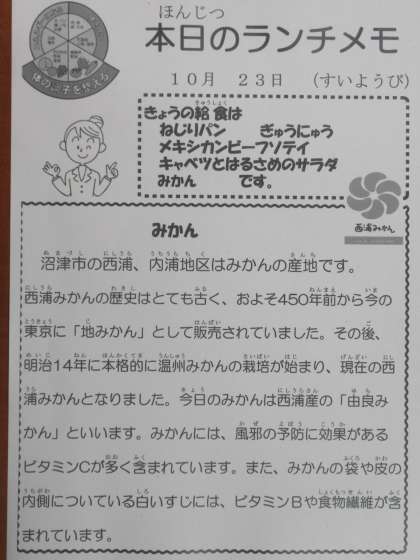 本日のランチメモ
10月 23日 (すいようび)
きょうの給食は
ねじりパン ぎゅうにゅう
メキシカンビーフソテイ
キャベツとはるさめのサラダ
みかん です。
西浦みかん
みかん
沼津市の西浦、内浦地区はみかんの産地です。
西浦みかんの歴史はとても古く、およそ450年前から今の
東京に「地みかん」として販売されていました。その後、
明治14年に本格的に温州みかんの栽培が始まり、現在の西
浦みかんとなりました。今日のみかんは西浦産の「由良み
かん」といいます。みかんには、風邪の予防に効果がある
ビタミンCが多く含まれています。また、みかんの袋や皮の
内側についている白いすじには、ビタミンBや食物繊維が含
まれています。